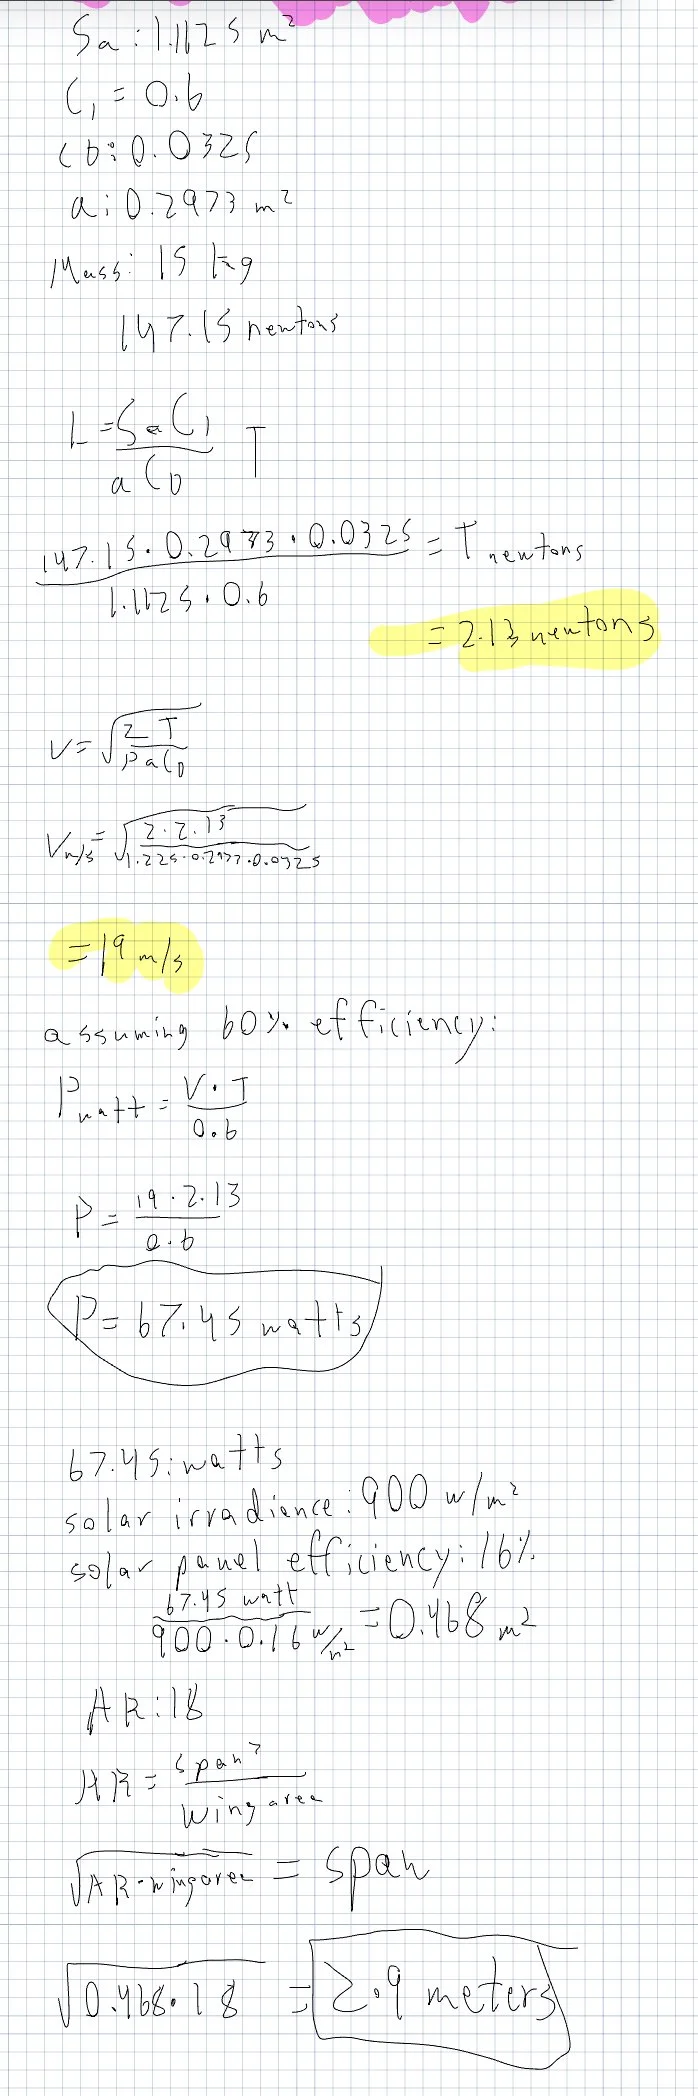 Sa: 1.1125 m²
C₁ = 0.6
CD: 0.0325
a: 0.2973 m²
Mass: 15 kg
147.15 newtons
L = SaC₁ / aCD T
147.15 · 0.2973 · 0.0325 / 1.1125 · 0.6 = T newtons
= 2.13 newtons
V = √(2T / ρaCD)
Vm/s = √(2 · 2.13 / 1.225 · 0.2973 · 0.0325)
= 19 m/s
assuming 60% efficiency:
Pwatt = V · T / 0.6
P = 19 · 2.13 / 0.6
P = 67.45 watts
67.45: watts
solar irradience: 900 w/m²
solar panel efficiency: 16%
67.45 watt / 900 · 0.16 w/m² = 0.468 m²
AR: 18
AR = span² / wing area
√(AR · wingarea) = span
√(0.468 · 18) = 2.9 meters